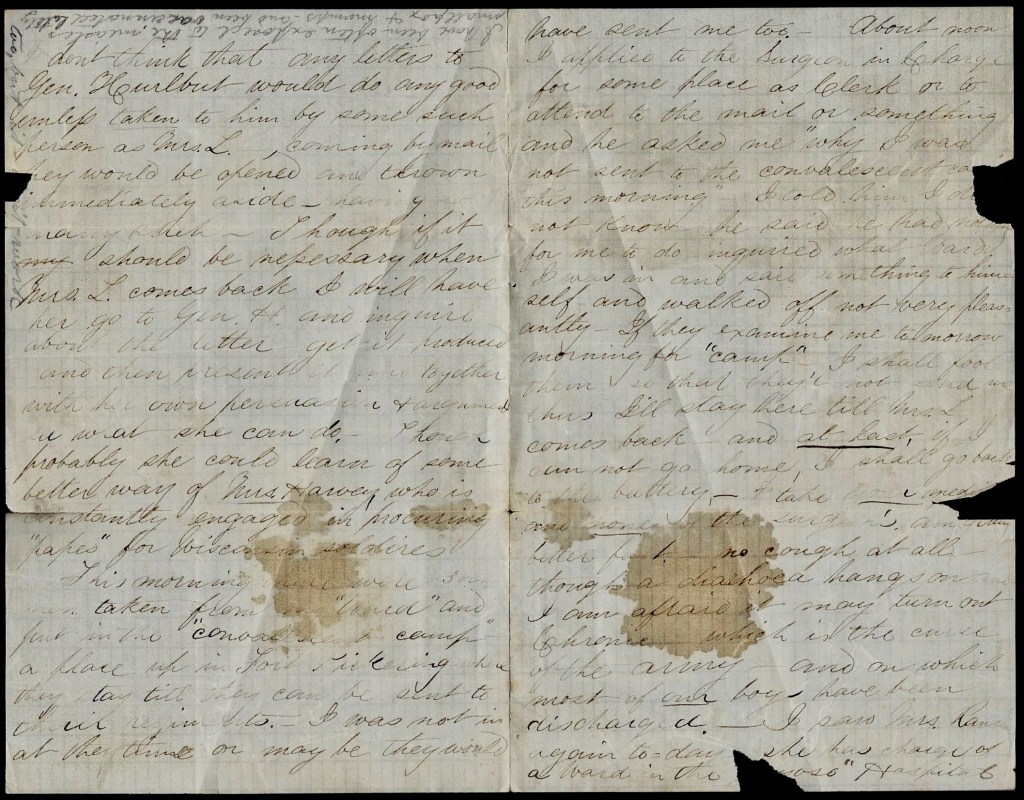 I dont think that any letters to
Gen. Hurlbut would do any good
unless taken to him by some such
person as Mrs. L. , coming by mail
they would be opened and thrown
immediately aside — having
many such — Though if it
should be nessessary when
Mrs. L. comes back I will have
her go to Gen. H. and inquire
about the letter get it produced
and then present it together
with her own persuasion &
what she can do — Though
probably she could learn of some
better way of Mrs. Harvey, who is
constantly engaged in procuring
"papes" for Wisconsin soldiers
This morning there were some
men taken from "ward" and
put in the "convalescent camp"
a place up in Fort Pickering where
they lay till they can be sent to
their regiments. — I was not in
at the time or may be they would
have sent me too. — About noon
I applied to the Surgeon in Charge
for some place as Clerk or to
attend to the mail or something
and he asked me "why I was
not sent to the convalescent
this morning" I told him I did
not know — he said he had
for me to do inquired what ward
I was in and said something to him-
self and walked off not very pleas-
antly — If they examine me to morrow
morning for "camp" I shall fool
them so that they'l not send me
thus I'll stay here till Mrs. L
comes back — and at last, if I
can not go home, I shall go back
to the battery — I take
and none of the
better — no cough at all —
though a diarhoea hangs on
I am afraid it may turn out
Chronic which is the curse
of the army — and on which
most of our boys have been
discharged — I saw Mrs.
again to=day she has charge of
a ward in the Hospital
I have been often exposed to the measles
smallpox & mumps — and been vaccinated lately